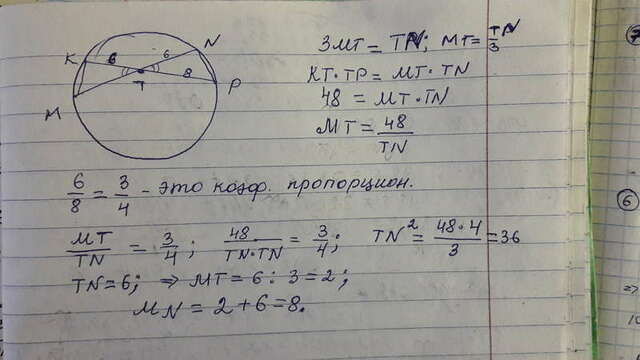 K 6 6 N
T 8 P
M
3MT = TN; MT = TN/3
KT·TP = MT·TN
48 = MT·TN
MT = 48/TN
6/8 = 3/4 - это коэф. пропорцион.
MT/TN = 3/4; 48/TN·TN = 3/4; TN² = 48·4/3 = 36
TN = 6; ⇒ MT = 6 : 3 = 2;
MN = 2 + 6 = 8.
6